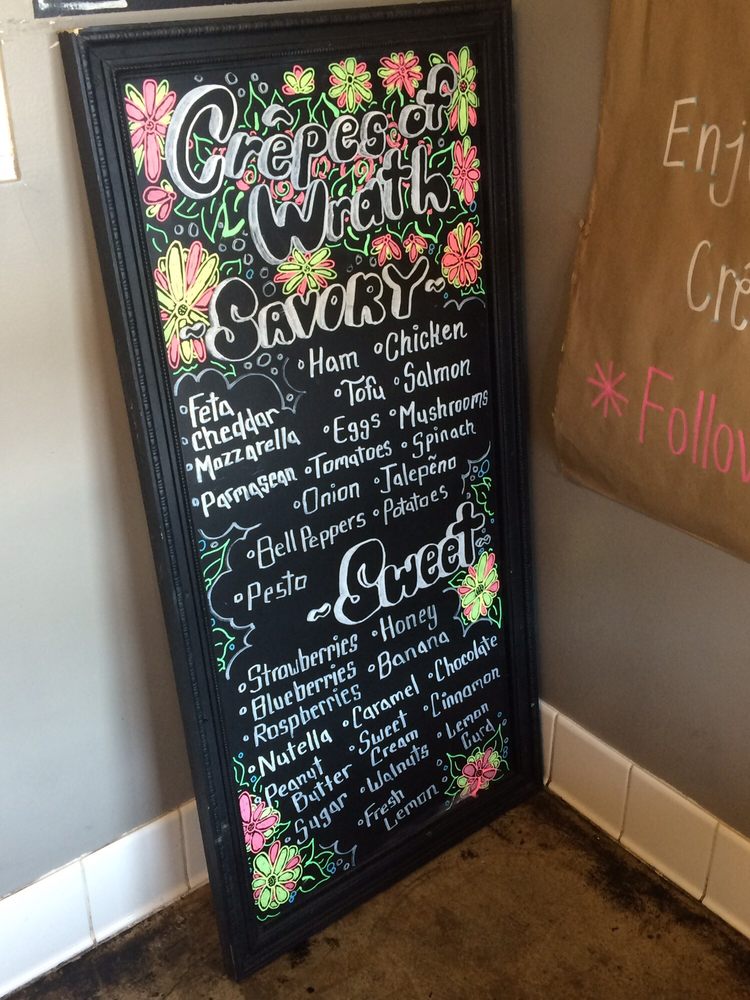 Crêpes of
Wrath
~SAVORY~
Ham
Chicken
Feta
Tofu
Salmon
Cheddar
Eggs
Mushrooms
Mozzarella
Tomatoes
Spinach
Parmasean
Onion
Jalepeño
Bell Peppers
Potatoes
Pesto
~Sweet~
Strawberries
Honey
Blueberries
Banana
Raspberries
Caramel
Chocolate
Nutella
Sweet
Cream
Cinnamon
Peanut
Butter
Walnuts
Lemon
Curd
Sugar
Fresh
Lemon
Enj
Crê
*Follow